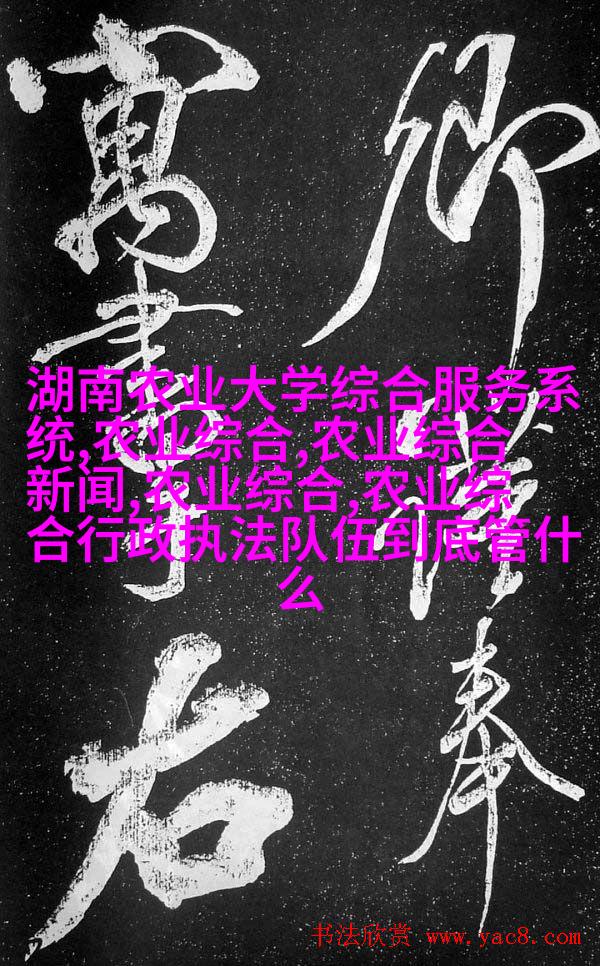 湖南农业大学综合服务系
统,农业综合,农业综合
新闻,农业综合,农业综
合行政执法队伍到底管什
么
卿
奉
书
右
书法欣赏 www.yac8.com